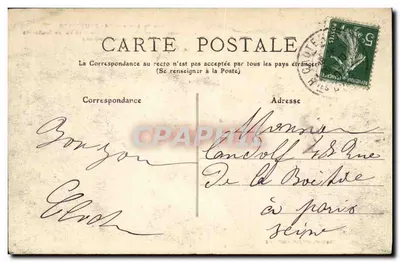 CARTE POSTALE
La Correspondance au recto n'est pas acceptée par tous les pays étrangers
(Se renseigner à la Poste)
Correspondance
Adresse
Bonjour
Monsieur
48 Rue
De La Boétie
à paris
seine